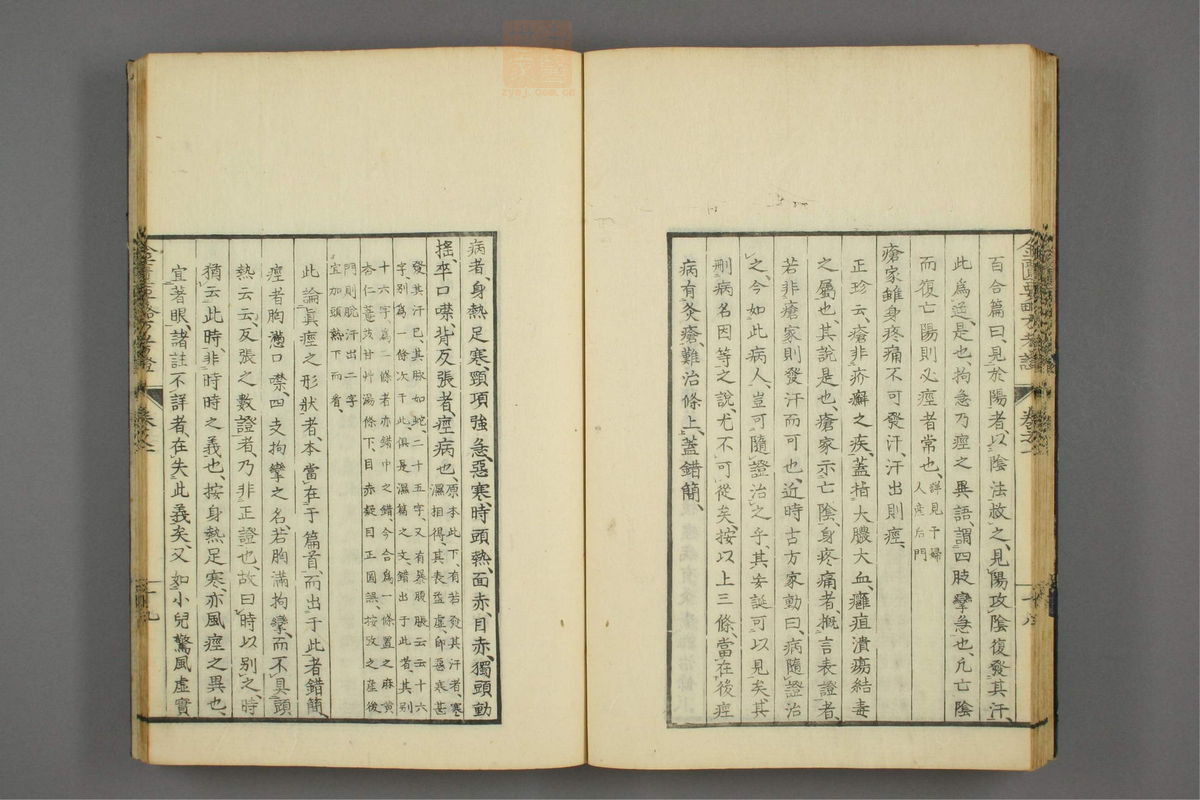 百合篇曰、見於陽者、以陰法救之、見陽攻陰、復發其汗、
此爲逆、是也、拘急乃痙之異語、謂四肢攣急也、凡亡陰
而復亡陽則必痙者常也、詳見于婦
人産后門
瘡家雖身疼痛不可發汗、汗出則痙、
正珍云、瘡非疥癬之疾、蓋指大膿大血、癰疽潰瘍結毒
之屬也、其說是也、瘡家示亡陰、身疼痛者、概言表證者、
若非瘡家則發汗而可也、近時古方家動曰、病隨證治
之、今如此病人、豈可隨證治之乎、其妄誕可以見矣、其
刪病名因等之說、尤不可從矣、按以上三條、當在後痙
病有灸瘡、難治條上、蓋錯簡、
病者、身熱足寒、頸項強急、惡寒、時頭熱、面赤、目赤、獨頭動
搖、卒口噤、背反張者、痙病也、原本此下、有若發其汗者、寒
濕相得、其表益虛、卽惡寒甚
發其汗已、其脈如蛇、二十五字、又有暴腹脹云云十六
字、別爲一條、次于此、俱是濕篇之文、錯出于此者、其別
十六字爲二條者、亦錯中之錯、今合爲一條、置之麻黃
杏仁薏苡甘艸湯條下、目赤疑目正圓誤、按攷之産後
門則脫汗出二字
宜加頭熱下而看、
此論眞痙之形狀者、本當在于篇首、而出于此者錯簡、
痙者胸滿口噤、四支拘攣之名、若胸滿拘攣、而不具頭
熱云云、反張之數證者、乃非正證也、故曰時以別之、時
猶云此時、非時時之義也、按身熱足寒、亦風痙之異也、
宜著眼、諸註不詳者、在失此義矣、又如小兒驚風虛實